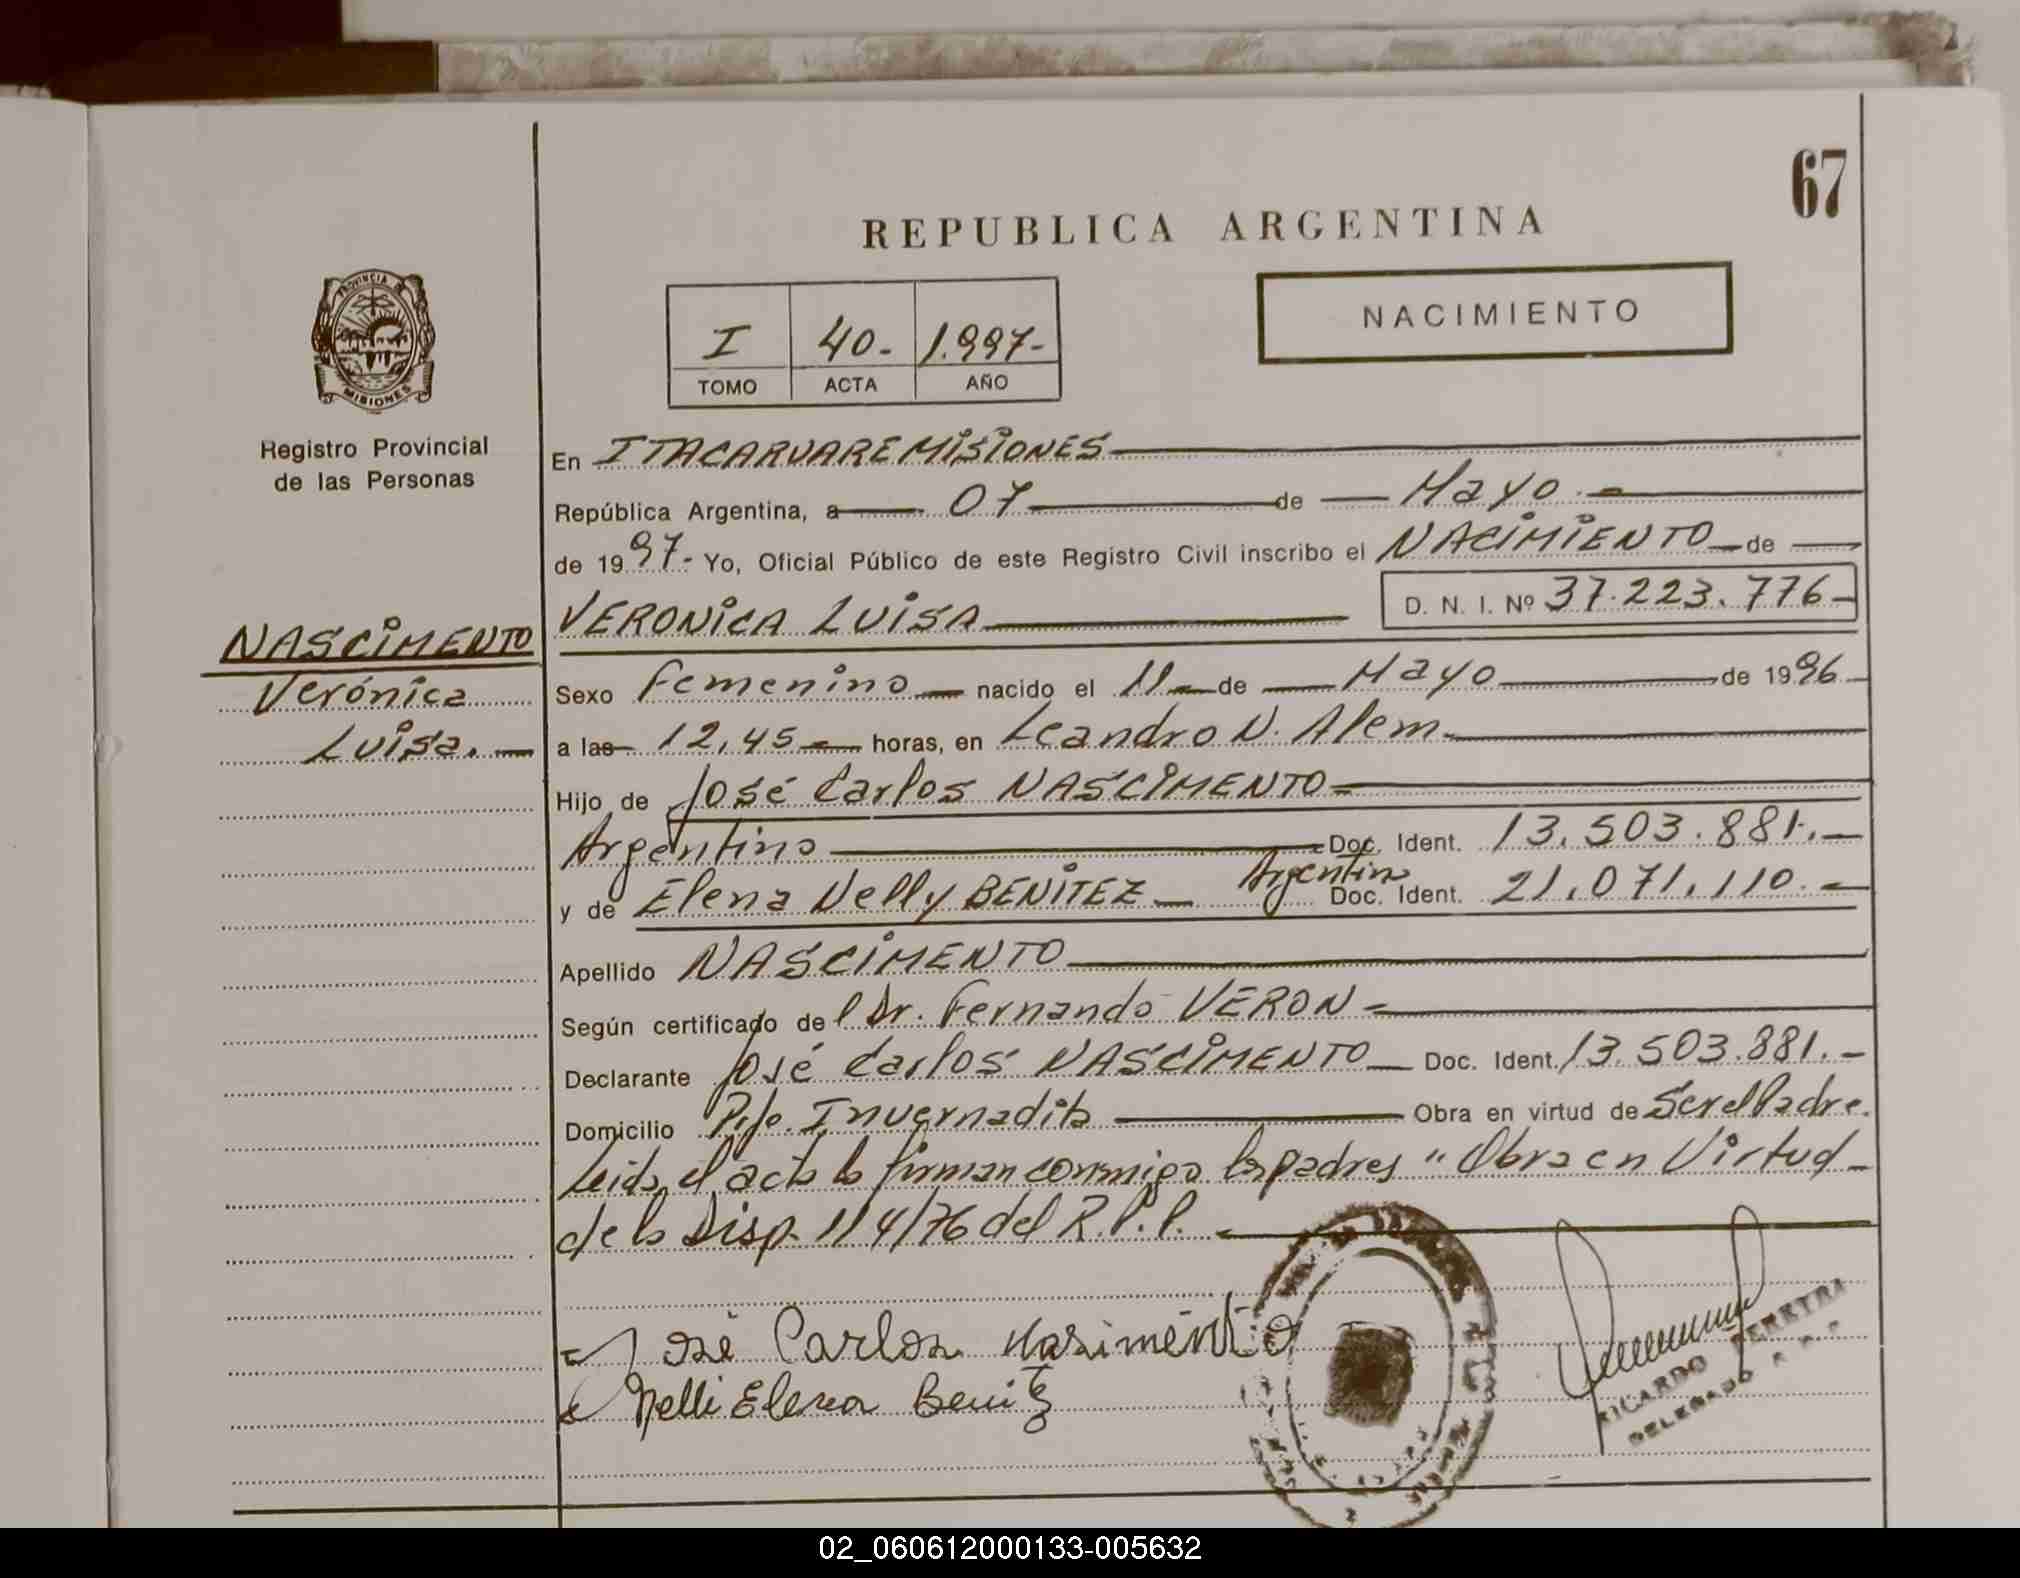 67
REPUBLICA ARGENTINA
NACIMIENTO
I 40- 1.997-
TOMO ACTA AÑO
PROVINCIA DE
MISIONES
Registro Provincial
de las Personas
En ITACARUARE MISIONES
República Argentina, a 07 de Mayo.-
de 1997- Yo, Oficial Público de este Registro Civil inscribo el NACIMIENTO de
VERONICA LUISA D. N. I. Nº 37.223.776-
NASCIMENTO
Verónica
Luisa.-
Sexo Femenino nacido el 11- de Mayo de 1996
a las 12,45 horas, en Leandro N. Alem.
Hijo de José Carlos NASCIMENTO
Argentino Doc. Ident. 13.503.881.-
y de Elena Nelly BENITEZ Argentina Doc. Ident. 21.071.110.-
Apellido NASCIMENTO
Según certificado del Dr. Fernando VERON
Declarante José Carlos NASCIMENTO Doc. Ident. 13.503.881.-
Domicilio Pje. Invernadita Obra en virtud de Ser el Padre.
Leida el acta la firman conmigo los padres "Obra en Virtud
de la Disp. 114/76 del R.P.P.
José Carlos Nasimento
Nelli Elena Benitez
RICARDO PEREYRA
DELEGADO
02_060612000133-005632